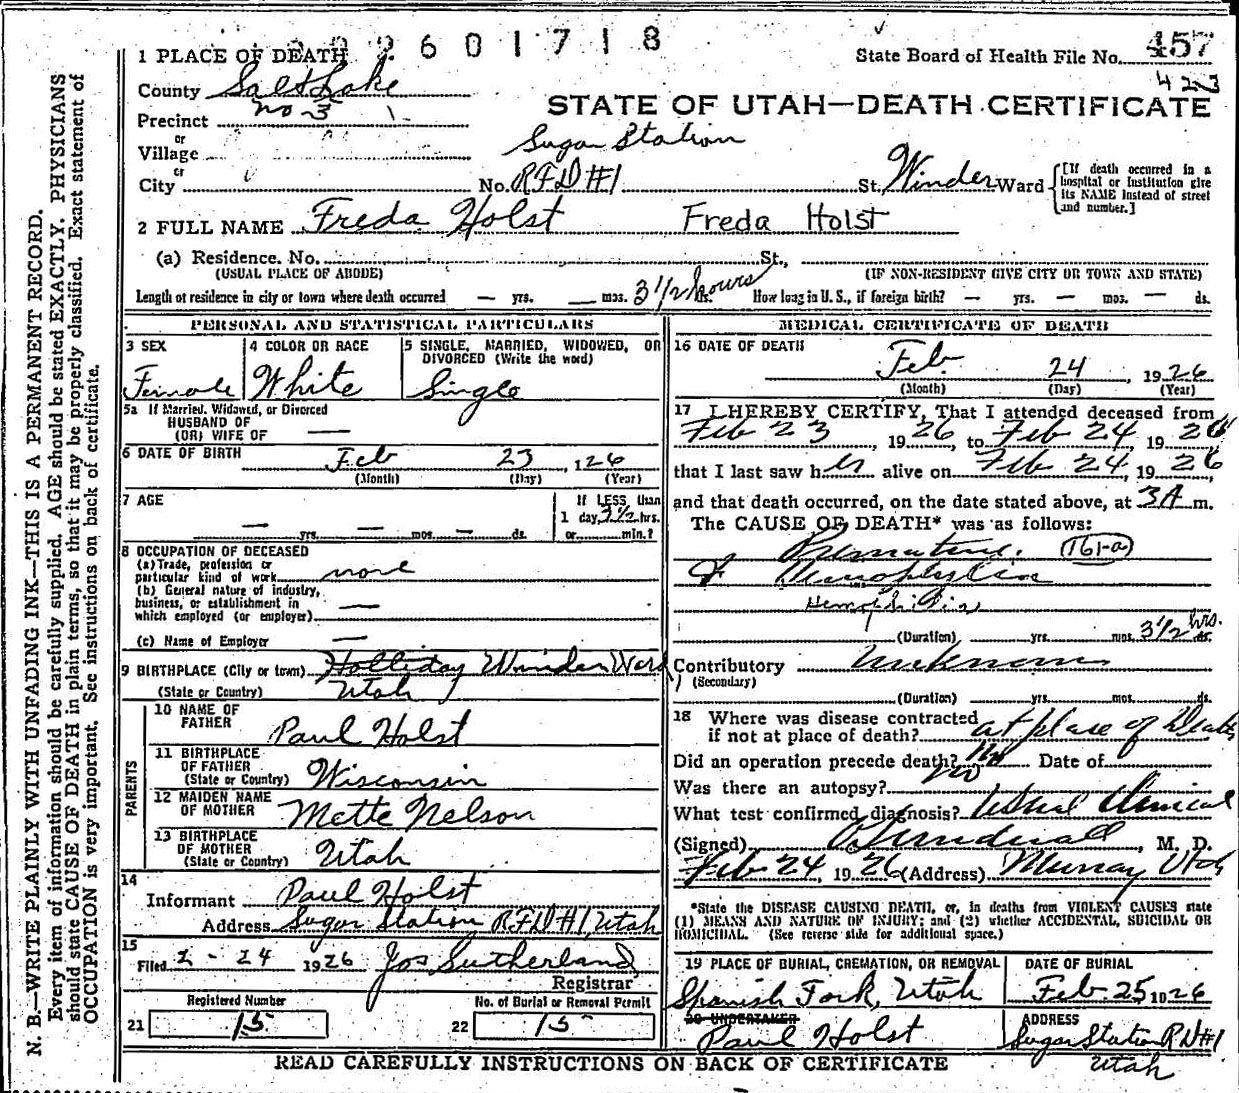 2601718
1 PLACE OF DEATH
State Board of Health File No. 457
423
County Salt Lake
STATE OF UTAH—DEATH CERTIFICATE
Precinct no 3
or
Village
Sugar Station
or
City No. RFD #1 St. Winder Ward
[If death occurred in a hospital or institution give its NAME instead of street and number.]
2 FULL NAME Freda Holst Freda Holst
(a) Residence. No. St.,
(USUAL PLACE OF ABODE) (IF NON-RESIDENT GIVE CITY OR TOWN AND STATE)
Length of residence in city or town where death occurred — yrs. — mos. 3 1/2 hours ds. How long in U. S., if foreign birth? — yrs. — mos. — ds.
PERSONAL AND STATISTICAL PARTICULARS
3 SEX
Female
4 COLOR OR RACE
White
5 SINGLE, MARRIED, WIDOWED, OR
DIVORCED (Write the word)
Single
5a If Married, Widowed, or Divorced
HUSBAND OF
(OR) WIFE OF —
6 DATE OF BIRTH Feb 23, 126
(Month) (Day) (Year)
7 AGE
— yrs. — mos. — ds.
If LESS than
1 day, 3 1/2 hrs.
or min.?
8 OCCUPATION OF DECEASED
(a) Trade, profession or
particular kind of work none
(b) General nature of industry,
business, or establishment in
which employed (or employer) —
(c) Name of Employer —
9 BIRTHPLACE (City or town) Holliday Winder Ward
(State or Country) Utah
PARENTS
10 NAME OF
FATHER Paul Holst
11 BIRTHPLACE
OF FATHER
(State or Country) Wisconsin
12 MAIDEN NAME
OF MOTHER Mette Nelson
13 BIRTHPLACE
OF MOTHER
(State or Country) Utah
14
Informant Paul Holst
Address Sugar Station RFD #1, Utah
15
Filed 2-24 1926 Jos Sutherland
Registrar
Registered Number
21 15
No. of Burial or Removal Permit
22 15
MEDICAL CERTIFICATE OF DEATH
16 DATE OF DEATH
Feb. 24, 1926
(Month) (Day) (Year)
17 I HEREBY CERTIFY, That I attended deceased from
Feb 23, 1926, to Feb 24 1926
that I last saw her alive on Feb 24, 1926,
and that death occurred, on the date stated above, at 3A m.
The CAUSE OF DEATH* was as follows:
Premature. 161-a
(Duration) yrs. mos. 3 1/2 hrs. ds.
Contributory Unknown
(Secondary)
(Duration) yrs. mos. ds.
18 Where was disease contracted
if not at place of death? at place of Death
Did an operation precede death? No Date of
Was there an autopsy? no
What test confirmed diagnosis? Usual Clinical
(Signed) , M. D.
Feb 24, 1926 (Address) Murray Utah
*State the DISEASE CAUSING DEATH, or, in deaths from VIOLENT CAUSES state
(1) MEANS AND NATURE OF INJURY; and (2) whether ACCIDENTAL, SUICIDAL OR
HOMICIDAL. (See reverse side for additional space.)
19 PLACE OF BURIAL, CREMATION, OR REMOVAL
Spanish Fork, Utah
DATE OF BURIAL
Feb. 25 1926
20 UNDERTAKER
Paul Holst
ADDRESS
Sugar Station R D #1
Utah
READ CAREFULLY INSTRUCTIONS ON BACK OF CERTIFICATE
N. B.—WRITE PLAINLY WITH UNFADING INK—THIS IS A PERMANENT RECORD.
Every item of information should be carefully supplied. AGE should be stated EXACTLY. PHYSICIANS
should state CAUSE OF DEATH in plain terms, so that it may be properly classified. Exact statement of
OCCUPATION is very important. See instructions on back of certificate.